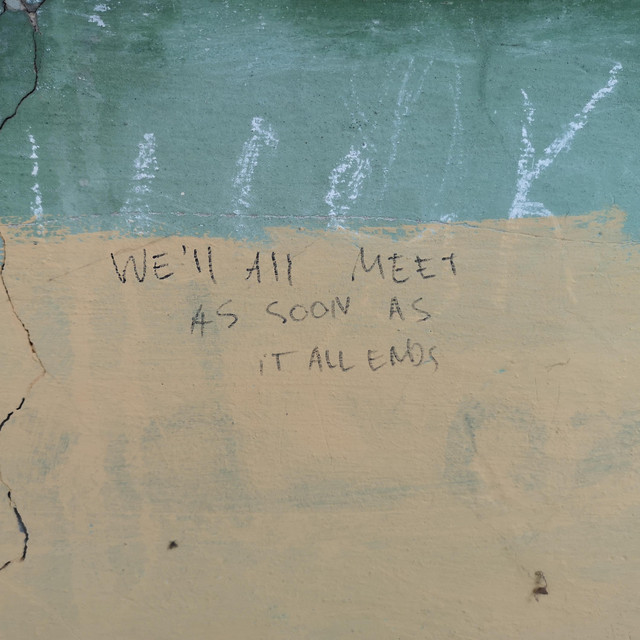 WE'll All MEET
AS SOON AS
iT ALL ENDS